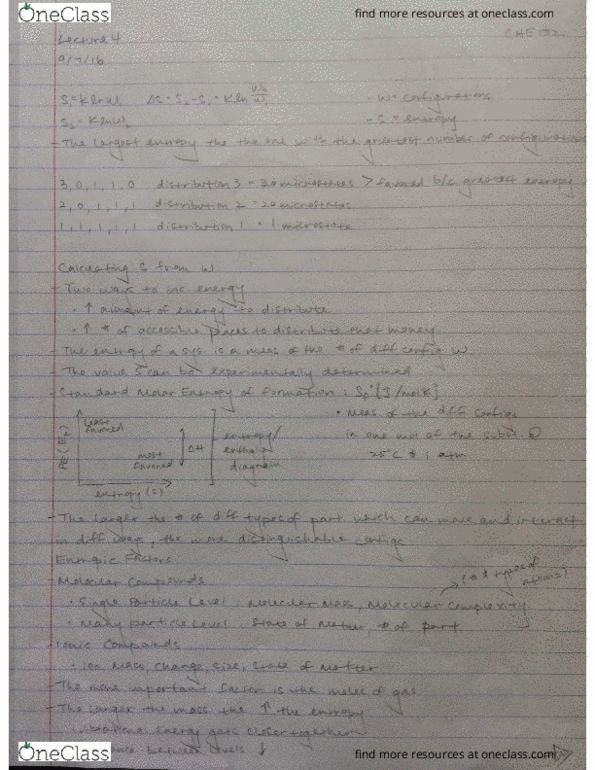 OneClass
find more resources at oneclass.com
Lecture 4
CHE132
9/7/16
S₁=KlnW₁ ΔS=S₂-S₁=Kln W₂/W₁ -W=configurations
S₂=KlnW₂ -S=entropy
-The largest entropy the the one with the greatest number of configurations
3,0,1,1,0 distribution 3 = 20 microstates > favored b/c greatest entropy
2,0,1,1,1 distribution 2 = 20 microstates
1,1,1,1,1 distribution 1 = 1 microstate
Calculating S from W
-Two ways to inc. energy
•↑ amount of energy to distribute
•↑ # of accessible places to distribute that money
-The entropy of a sys. is a meas of the # of diff config W
-The value S can be experimentally determined
-Standard Molar Entropy of formation: S°[J/molK]
least favored
most favored
ΔH
PE(Ep)
entropy (S)
entropy/
enthalpy
diagram
•Meas of the diff configs
in one mol of the subst. @
25°C & 1 atm
-The larger the # of diff types of part. which can move and interact
in diff ways, the more distinguishable configs
Entropic Factors
-Molecular Compounds
(# & types of atoms)
•Single Particle Level: Molecular Mass, Molecular Complexity
•Many Particle Level: State of Matter, # of part.
-Ionic Compounds
•Ion Mass, Charge, Size, State of Matter
-The more important factor is the moles of gas
-The larger the mass the ↑ the entropy
•vibrational energy gets closer together
between levels ↓
OneClass
find more resources at oneclass.com